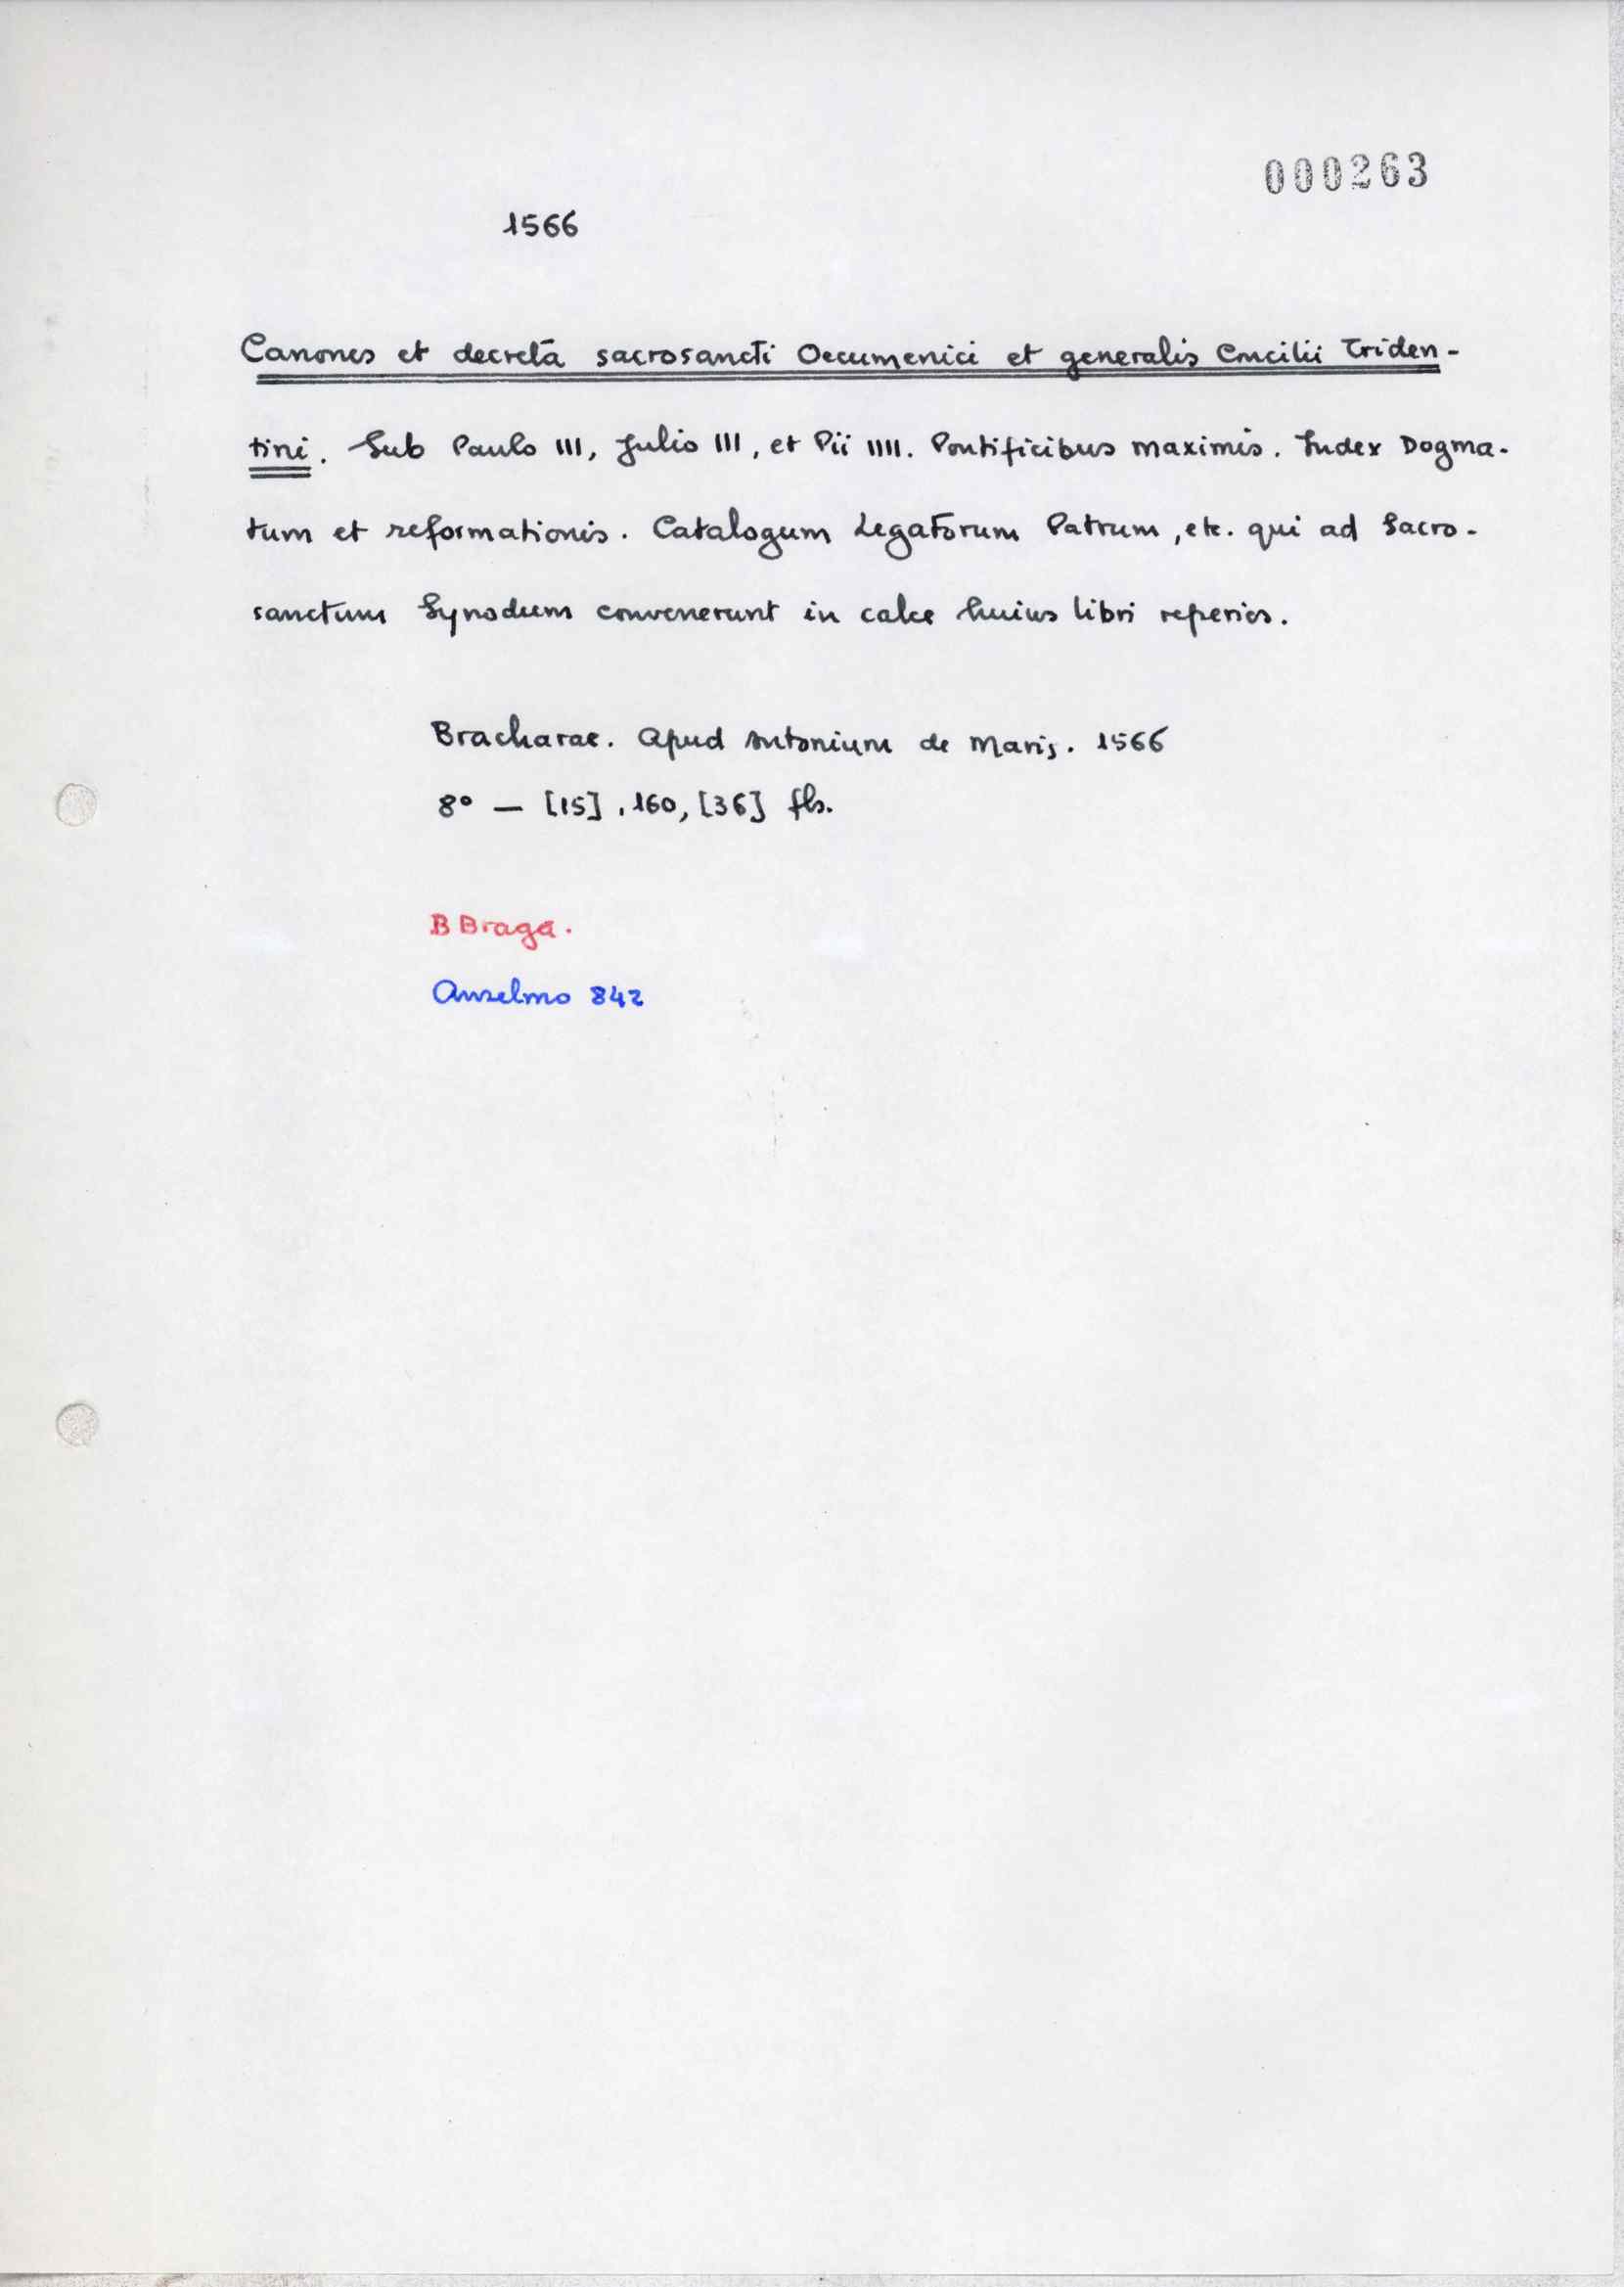 000263
1566
Canones et decreta sacrosancti Oecumenici et generalis Concilii Triden-
tini. Sub Paulo III, Julio III, et Pii IIII. Pontificibus maximis. Index Dogma-
tum et reformationis. Catalogum Legatorum Patrum, etc. qui ad Sacro-
sanctum Synodum convenerunt in calce huius libri reperies.
Bracharae. Apud Antonium de Maris. 1566
8º — [15], 160, [36] fls.
B Braga.
Anselmo 842